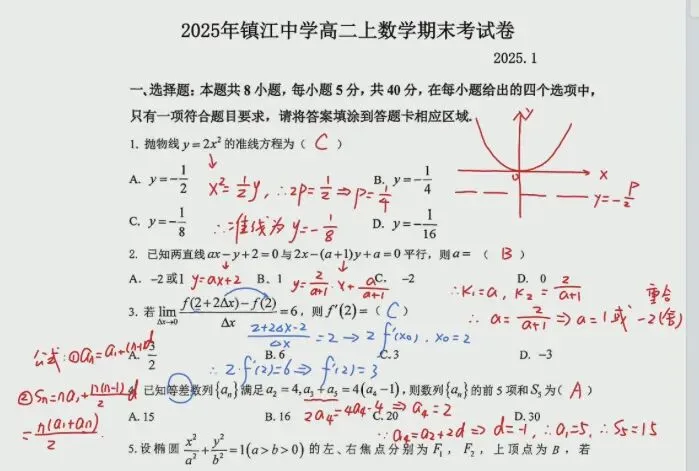 2025年镇江中学高二上数学期末考试卷
2025.1
一、选择题：本题共 8 小题，每小题 5 分，共 40 分，在每小题给出的四个选项中，
只有一项符合题目要求，请将答案填涂到答题卡相应区域.
1. 抛物线 y=2x² 的准线方程为（ C ）
y
x
0
y=-p/2
A. y=-1/2
x²=1/2y, ∴2p=1/2⇒p=1/4
B. y=-1/4
C. y=-1/8
∴准线为y=-1/8
D. y=-1/16
2. 已知两直线 ax-y+2=0 与 2x-(a+1)y+a=0 平行，则 a=（ B ）
A. -2 或1
y=ax+2
B、1
y=2/(a+1)·x+a/(a+1)
C. -2
D. 0
∴K₁=a, K₂=2/(a+1)
重合
∴a=2/(a+1)⇒a=1或-2(舍)
3. 若 lim Δx→0 (f(2+2Δx)-f(2))/Δx=6，则 f'(2)=（ C ）
(2+2Δx-2)/Δx=2→2f'(x₀), x₀=2
A. 3/2
B. 6
C. 3
D. -3
∴2f'(2)=6⇒f'(2)=3
公式:①an=a₁+(n-1)d
②Sn=na₁+n(n-1)/2 d
=n(a₁+an)/2
4. 已知等差数列{aₙ}满足 a₂=4,a₃+a₅=4(a₄-1)，则数列{aₙ}的前 5 项和 S₅ 为（ A ）
A. 15
B. 16
C. 20
D. 30
2a₄=4a₄-4⇒a₄=2
∴a₄=a₂+2d⇒d=-1, ∴a₁=5, ∴S₅=15
5. 设椭圆 x²/a²+y²/b²=1(a>b>0) 的左、右焦点分别为 F₁，F₂，上顶点为 B，若